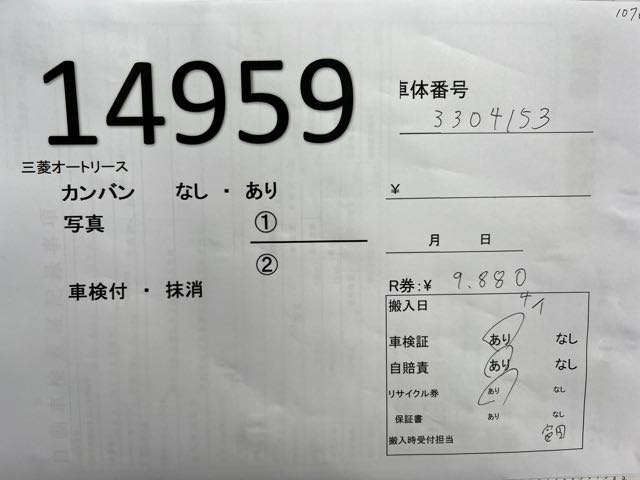 14959
三菱オートリース
カンバン なし ・ あり
写真 ①
②
車検付 ・ 抹消
車体番号
3304153
¥
月 日
R券:¥ 9.880
搬入日 4/1
車検証 あり なし
自賠責 あり なし
リサイクル券 あり なし
保証書 あり なし
搬入時受付担当